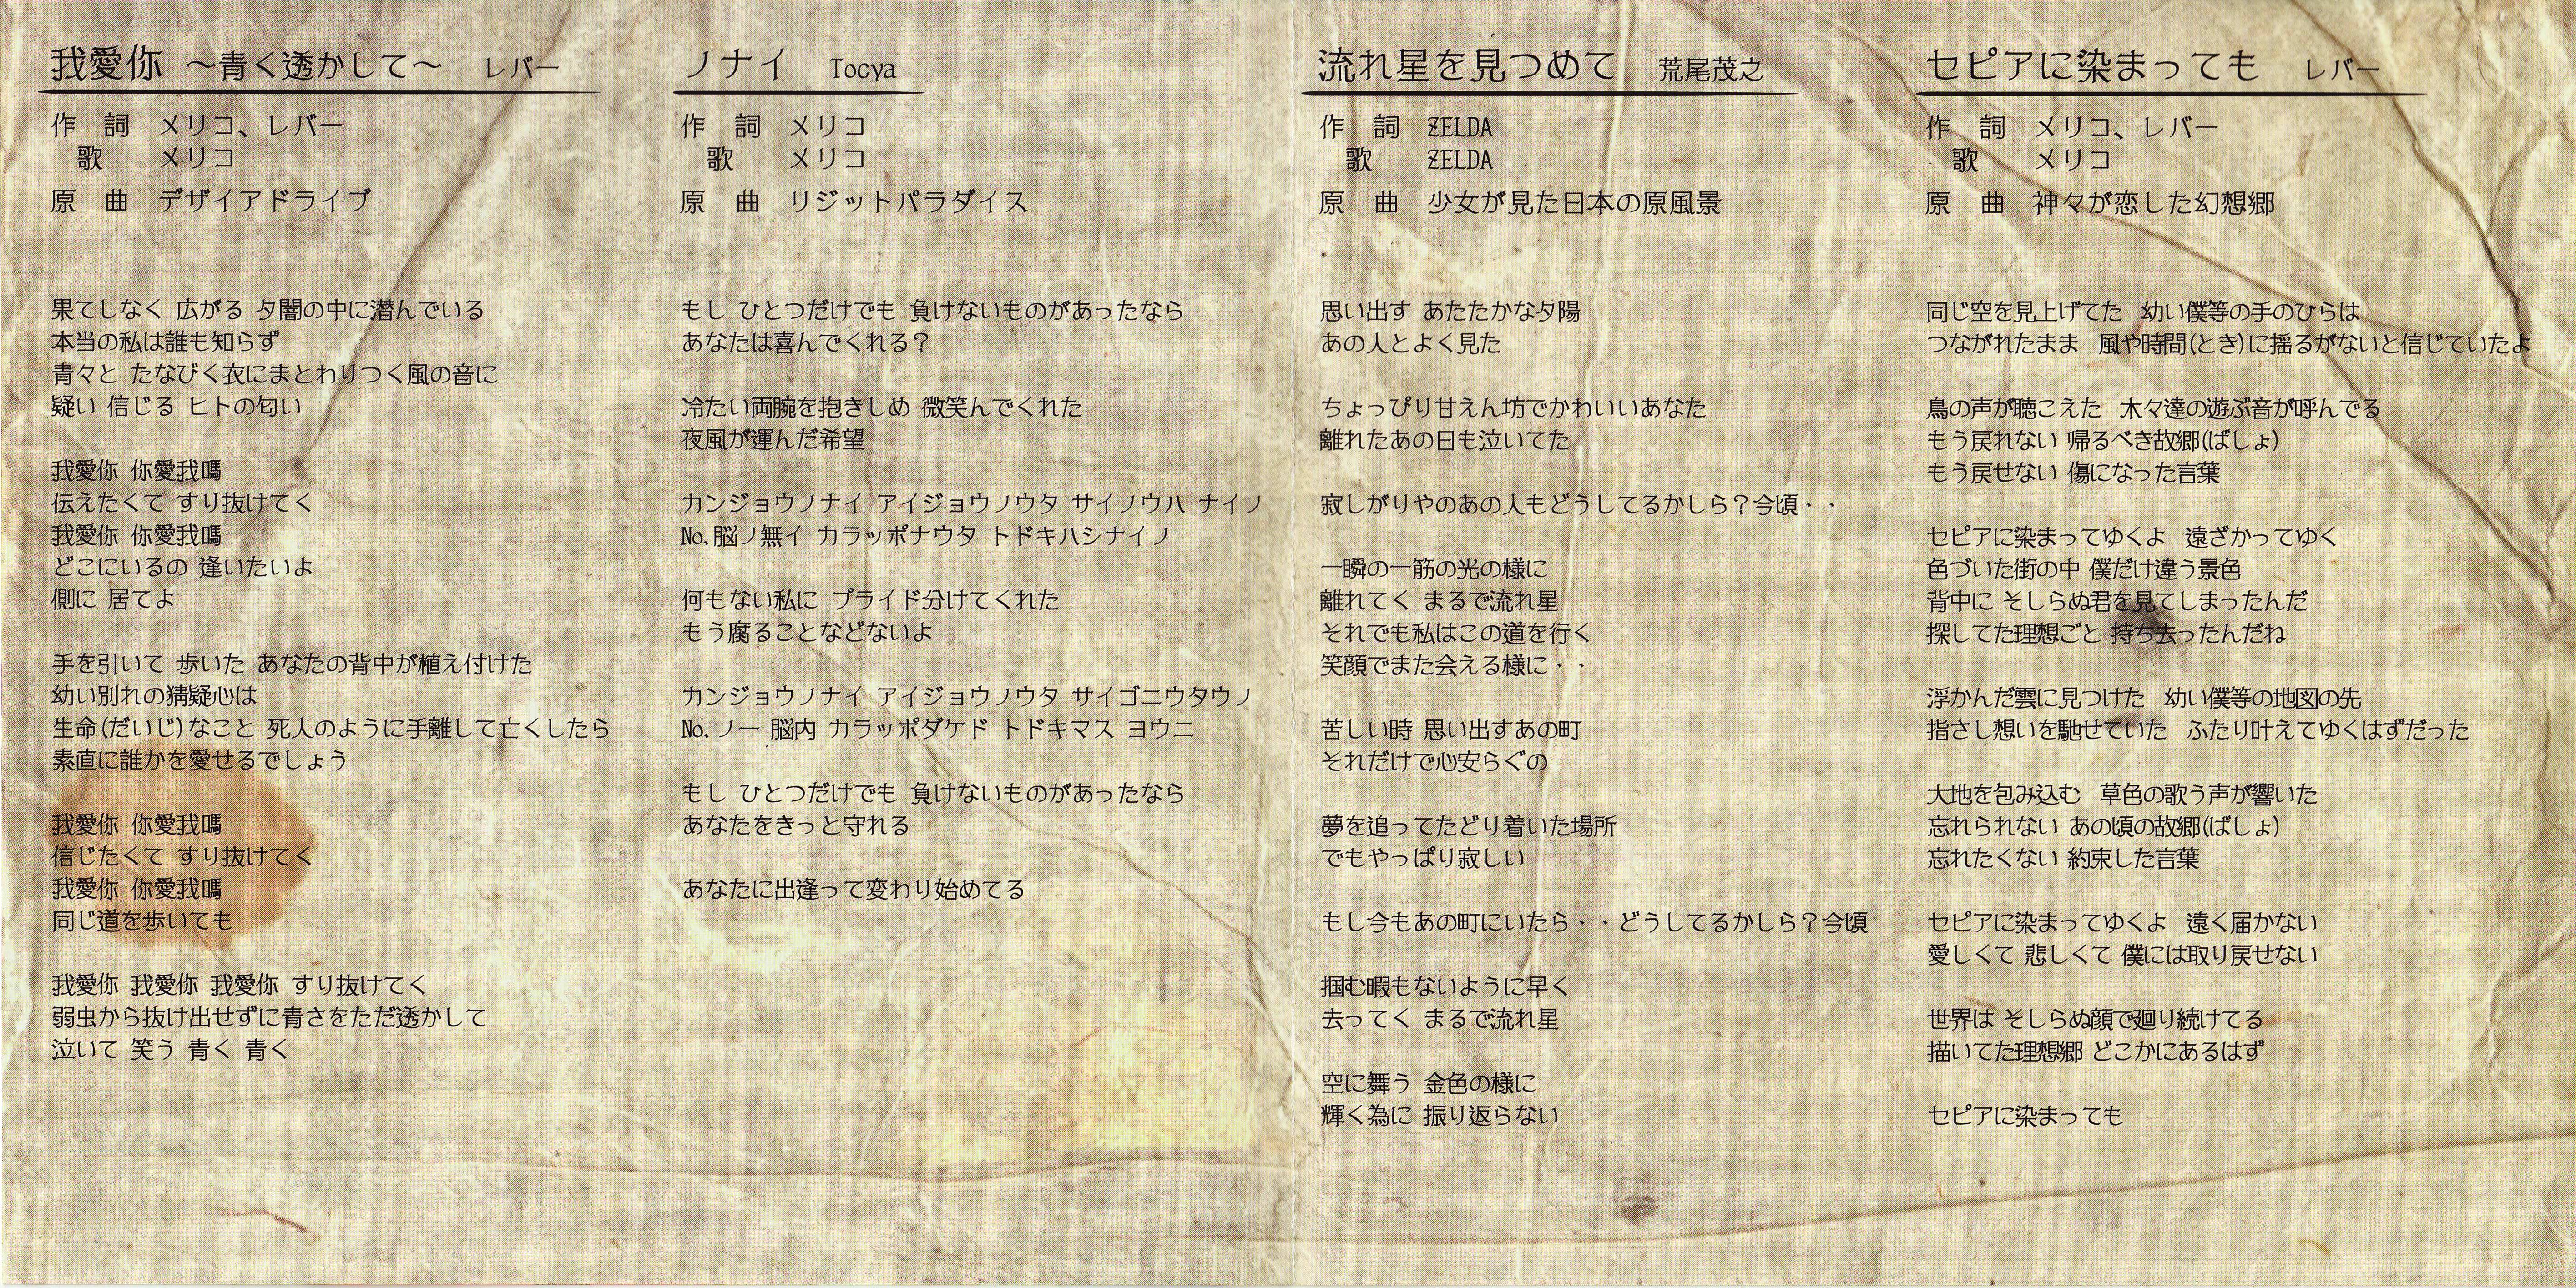 我愛你 ～青く透かして～ レバー
作 詞 メリコ、レバー
歌 メリコ
原 曲 デザイアドライブ
果てしなく 広がる 夕闇の中に潜んでいる
本当の私は誰も知らず
青々と たなびく衣にまとわりつく風の音に
疑い 信じる ヒトの匂い
我愛你 你愛我嗎
伝えたくて すり抜けてく
我愛你 你愛我嗎
どこにいるの 逢いたいよ
側に 居てよ
手を引いて 歩いた あなたの背中が植え付けた
幼い別れの猜疑心は
生命(だいじ)なこと 死人のように手離して亡くしたら
素直に誰かを愛せるでしょう
我愛你 你愛我嗎
信じたくて すり抜けてく
我愛你 你愛我嗎
同じ道を歩いても
我愛你 我愛你 我愛你 すり抜けてく
弱虫から抜け出せずに青さをただ透かして
泣いて 笑う 青く 青く
ノナイ Tocya
作 詞 メリコ
歌 メリコ
原 曲 リジットパラダイス
もし ひとつだけでも 負けないものがあったなら
あなたは喜んでくれる？
冷たい両腕を抱きしめ 微笑んでくれた
夜風が運んだ希望
カンジョウノナイ アイジョウノウタ サイノウハ ナイノ
No.脳ノ無イ カラッポナウタ トドキハシナイノ
何もない私に プライド分けてくれた
もう腐ることなどないよ
カンジョウノナイ アイジョウノウタ サイゴニウタウノ
No. ノー 脳内 カラッポダケド トドキマス ヨウニ
もし ひとつだけでも 負けないものがあったなら
あなたをきっと守れる
あなたに出逢って変わり始めてる
流れ星を見つめて 荒尾茂之
作 詞 ZELDA
歌 ZELDA
原 曲 少女が見た日本の原風景
思い出す あたたかな夕陽
あの人とよく見た
ちょっぴり甘えん坊でかわいいあなた
離れたあの日も泣いてた
寂しがりやのあの人もどうしてるかしら？今頃・・
一瞬の一筋の光の様に
離れてく まるで流れ星
それでも私はこの道を行く
笑顔でまた会える様に・・
苦しい時 思い出すあの町
それだけで心安らぐの
夢を追ってたどり着いた場所
でもやっぱり寂しい
もし今もあの町にいたら・・どうしてるかしら？今頃
掴む暇もないように早く
去ってく まるで流れ星
空に舞う 金色の様に
輝く為に 振り返らない
セピアに染まっても レバー
作 詞 メリコ、レバー
歌 メリコ
原 曲 神々が恋した幻想郷
同じ空を見上げてた 幼い僕等の手のひらは
つながれたまま 風や時間(とき)に揺るがないと信じていたよ
鳥の声が聴こえた 木々達の遊ぶ音が呼んでる
もう戻れない 帰るべき故郷(ばしょ)
もう戻せない 傷になった言葉
セピアに染まってゆくよ 遠ざかってゆく
色づいた街の中 僕だけ違う景色
背中に そしらぬ君を見てしまったんだ
探してた理想ごと 持ち去ったんだね
浮かんだ雲に見つけた 幼い僕等の地図の先
指さし想いを馳せていた ふたり叶えてゆくはずだった
大地を包み込む 草色の歌う声が響いた
忘れられない あの頃の故郷(ばしょ)
忘れたくない 約束した言葉
セピアに染まってゆくよ 遠く届かない
愛しくて 悲しくて 僕には取り戻せない
世界は そしらぬ顔で廻り続けてる
描いてた理想郷 どこかにあるはず
セピアに染まっても